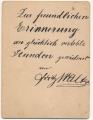 Zur freundlichen
Erinnerung
an glücklich verlebte
Stunden gewidmet
von
Fritz